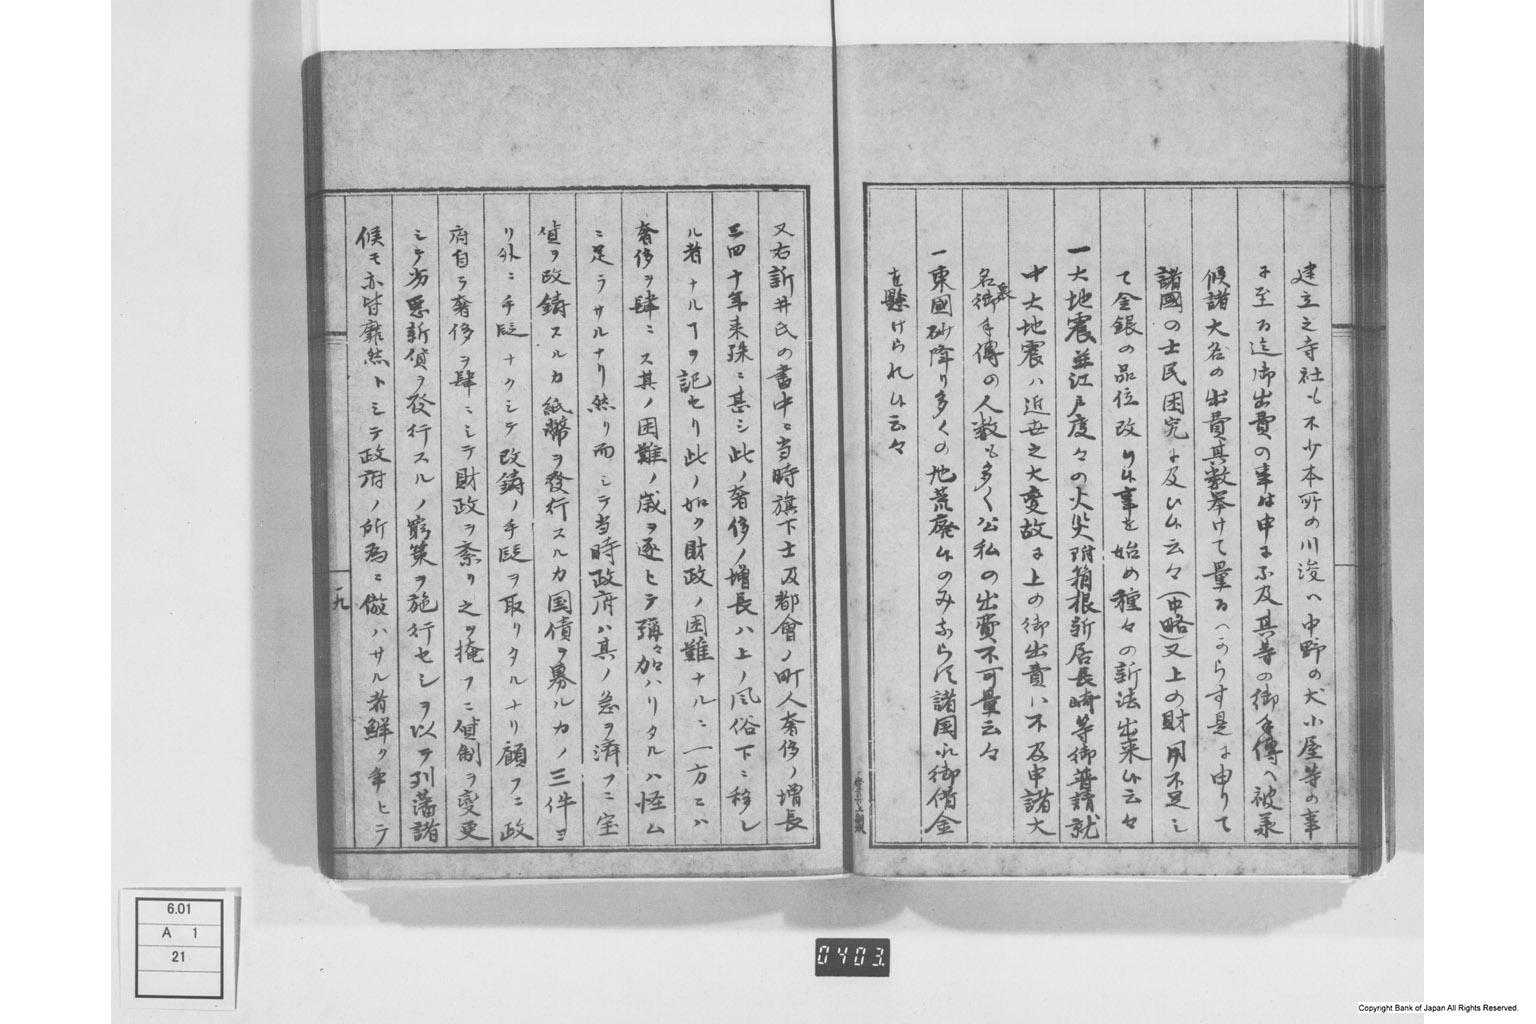 建立之寺社も不少本所の川浚へ中野の犬小屋等の事
に至る迄御出費の事は申に不及其等の御手傳へ被承
候諸大名の出費其数挙けて量るへからす是に由りて
諸國の士民困究に及ひ候云々(中略)又上の財用不足し
て金銀の品位改り候事を始め種々の新法出来候云々
一大地震並江戸度々の火災附箱根新居長崎等御普請就
中大地震ハ近世之大変故に上の御出費ハ不及申諸大
名衆御手傳の人数も多く公私の出費不可量云々
一東國砂降り多くの地荒廃候のみならす諸国へ御借金
を懸けられ候云々
又右新井氏の書中ニ当時旗下士及都會ノ町人奢侈ノ増長
三四十年来殊ニ甚シ此ノ奢侈ノ増長ハ上ノ風俗下ニ移レ
ル者ナルヿヲ記セリ此ノ如ク財政ノ困難ナルニ一方ニハ
奢侈ヲ肆ニス其ノ困難ノ歳ヲ逐ヒテ彌々加ハリタルハ怪ム
ニ足ラサルナリ然リ而シテ当時政府ハ其ノ急ヲ濟フニ宝
貨ヲ改鋳スルカ紙幣ヲ發行スルカ国債ヲ募ルカノ三件ヨ
リ外ニ手段ナクシテ改鋳ノ手段ヲ取リタルナリ顧フニ政
府自ラ奢侈ヲ肆ニシテ財政ヲ紊リ之ヲ掩フニ貨制ヲ変更
シテ劣悪新貨ヲ發行スルノ窮策ヲ施行セシヲ以テ列藩諸
侯モ亦皆靡然トシテ政府ノ所為ニ倣ハサル者鮮ク率ヒテ
一九
6.01
A 1
21
0403
Copyright Bank of Japan All Rights Reserved.